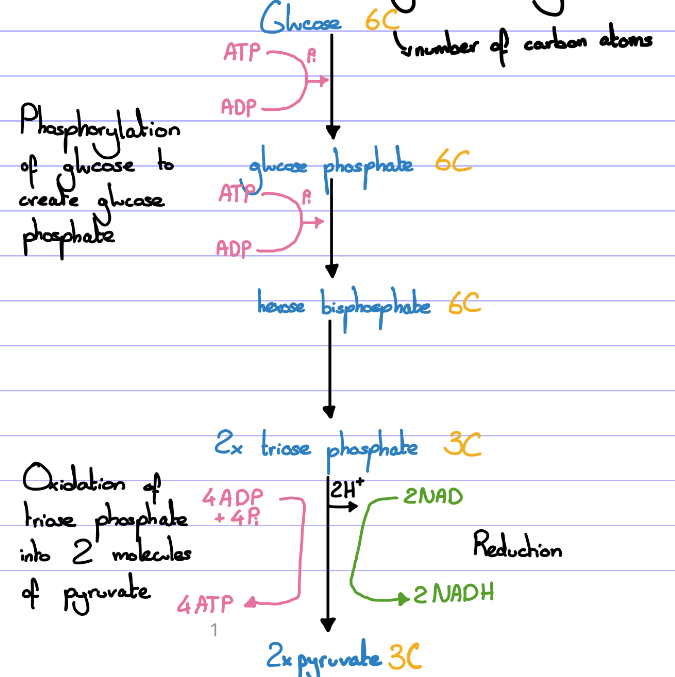 Glucose 6C
number of carbon atoms
ATP Pi
ADP
Phosphorylation
of glucose to
create glucose
phosphate
glucose phosphate 6C
ATP Pi
ADP
hexose bisphosphate 6C
2x triose phosphate 3C
Oxidation of
triose phosphate
into 2 molecules
of pyruvate
4ADP
+ 4Pi
4ATP
2H⁺
2NAD
Reduction
2NADH
1
2x pyruvate 3C